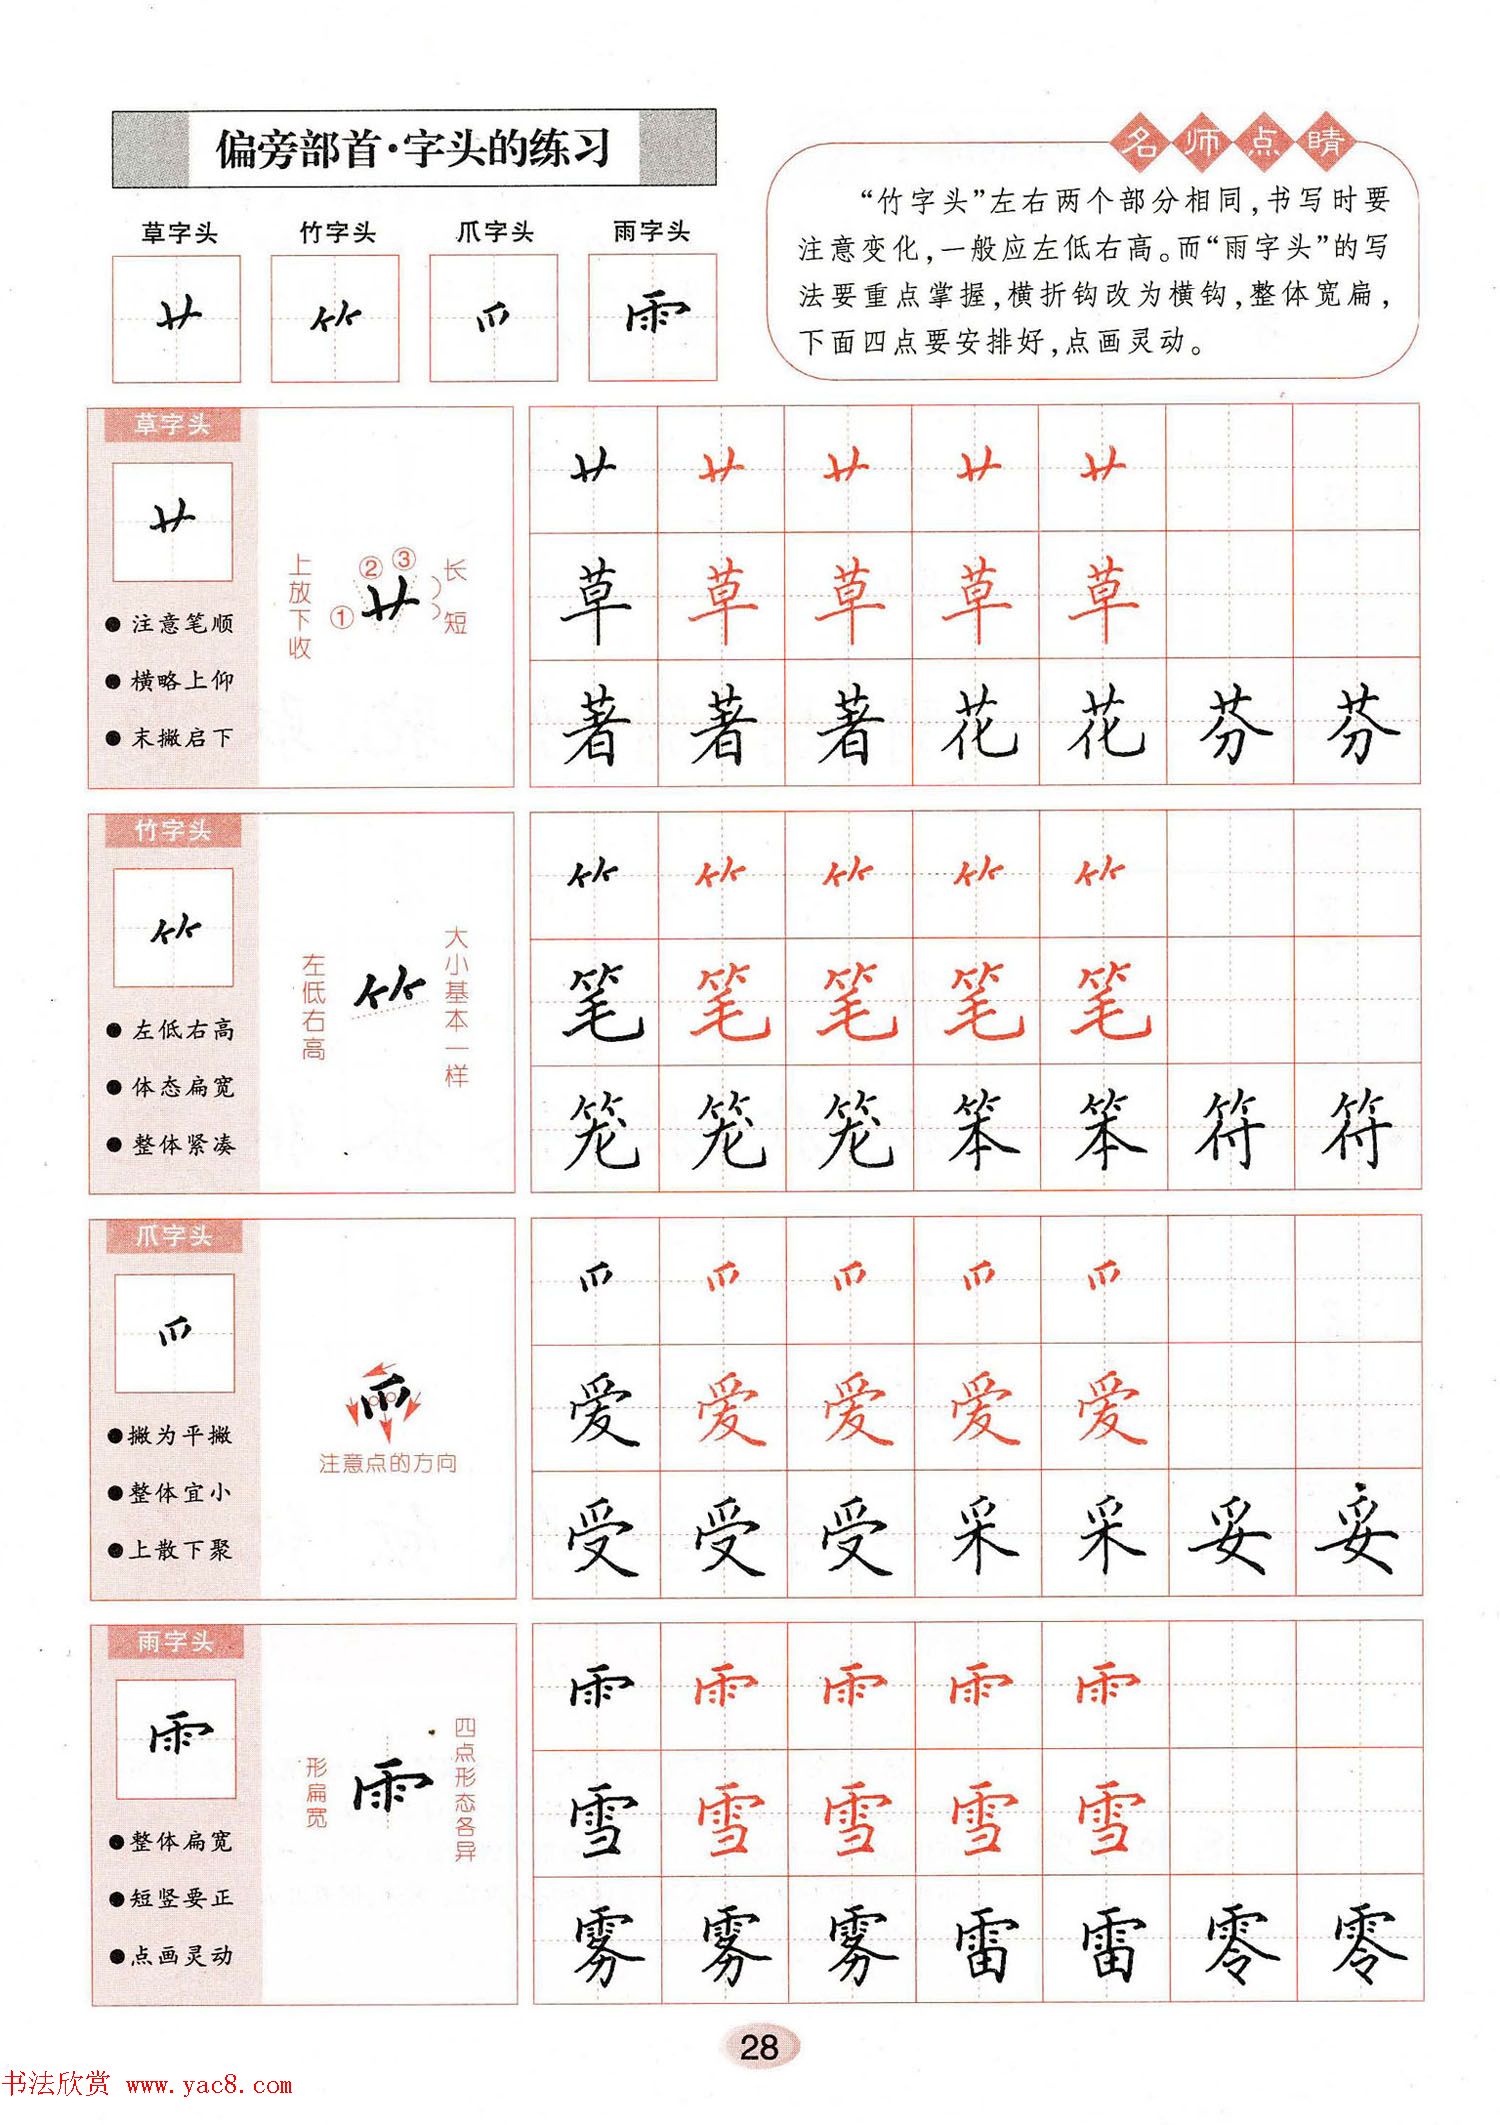 偏旁部首·字头的练习
名师点睛
草字头 竹字头 爪字头 雨字头
艹 𥫗 爫 ⻗
“竹字头”左右两个部分相同,书写时要
注意变化,一般应左低右高。而“雨字头”的写
法要重点掌握,横折钩改为横钩,整体宽扁,
下面四点要安排好,点画灵动。
草字头
艹
注意笔顺
横略上仰
末撇启下
上放下收
① ② ③
艹
长
短
艹 艹 艹 艹 艹
草 草 草 草 草
著 著 著 花 花 芬 芬
竹字头
𥫗
左低右高
体态扁宽
整体紧凑
左低右高
𥫗
大小基本一样
𥫗 𥫗 𥫗 𥫗 𥫗
笔 笔 笔 笔 笔
笼 笼 笼 笨 笨 符 符
爪字头
爫
撇为平撇
整体宜小
上散下聚
爫
注意点的方向
爫 爫 爫 爫 爫
爱 爱 爱 爱 爱
受 受 受 采 采 妥 妥
雨字头
⻗
整体扁宽
短竖要正
点画灵动
形扁宽
⻗
四点形态各异
⻗ ⻗ ⻗ ⻗ ⻗
雪 雪 雪 雪 雪
雾 雾 雾 雷 雷 零 零
28
书法欣赏 www.yac8.com